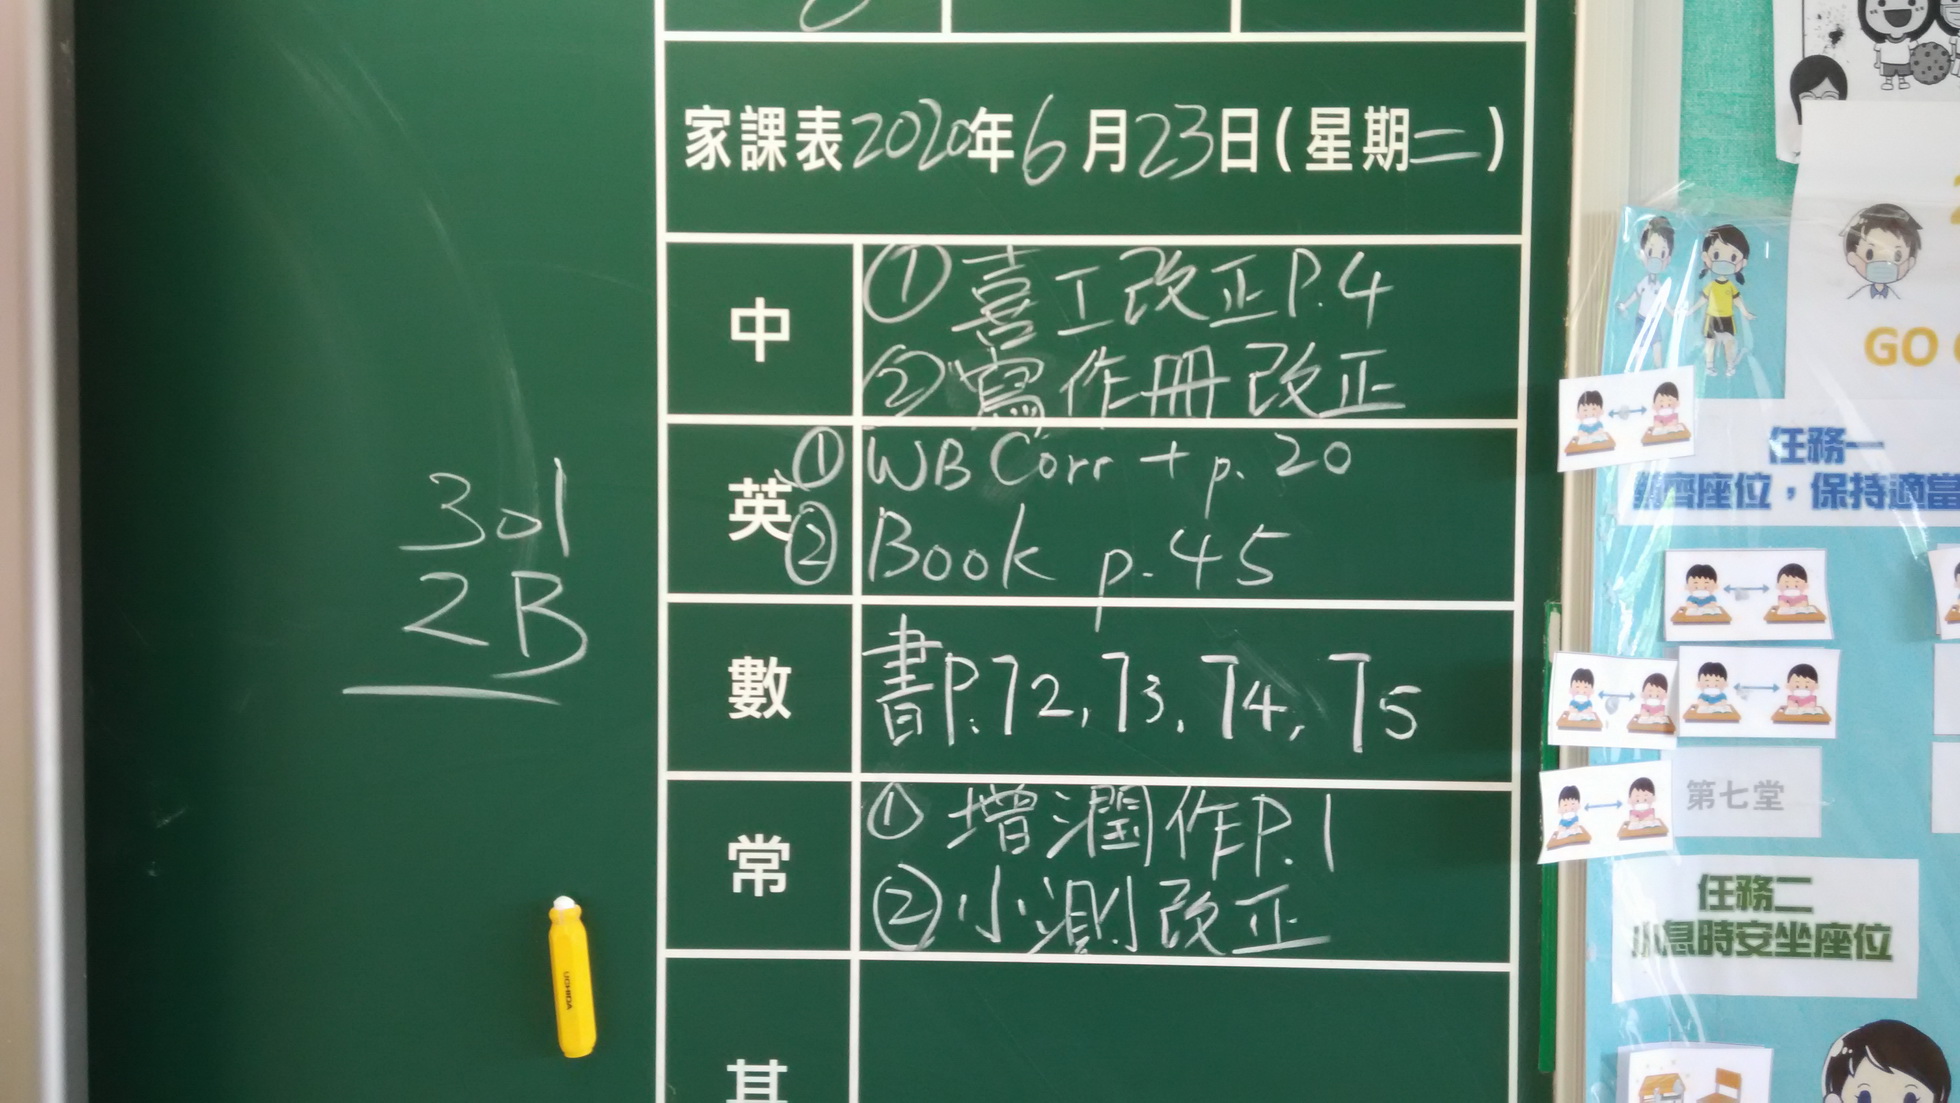 家課表2020年6月23日(星期二)
中
①喜工改正P.4
②寫作冊改正
英
①WB Corr + p. 20
②Book p.45
數
書P.72, 73, 74, 75
常
①增潤作P.1
②小測改正
301
2B
UCHIDA
GO
任務一
座位，保持適當
第七堂
任務二
小息時安坐座位